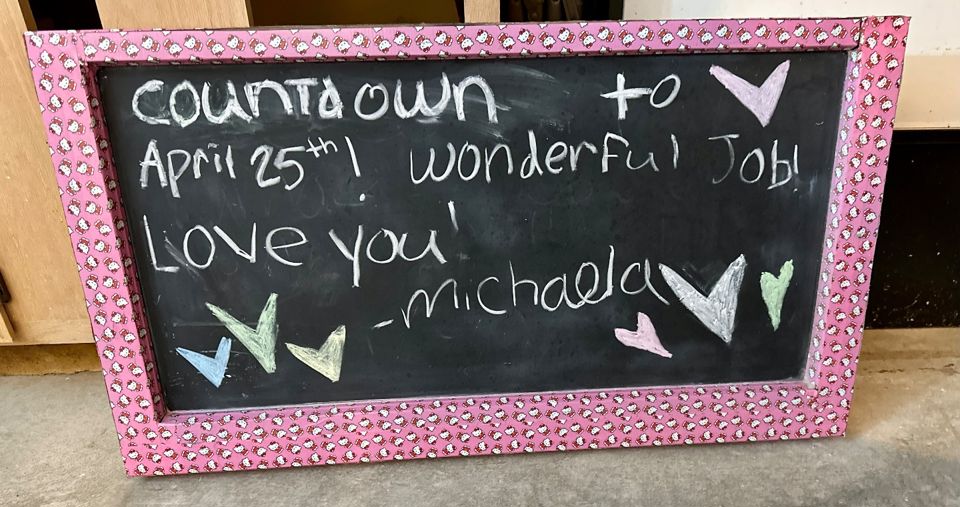 Countdown to
April 25th! Wonderful Job!
Love you!
-michaela